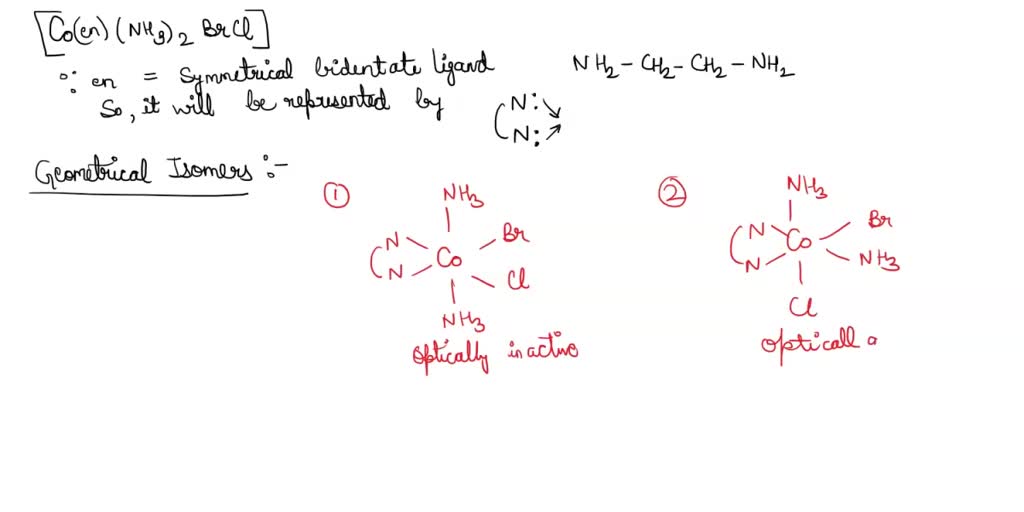 [Co(en)(NH3)2 BrCl]
∵ en = Symmetrical bidentate ligand NH2-CH2-CH2-NH2
So, it will be represented by
N:
N:
Geometrical Isomers :-
①
NH3
N
Br
Co
N
Cl
NH3
Optically inactive
②
NH3
N
Br
Co
N
NH3
Cl
opticall a